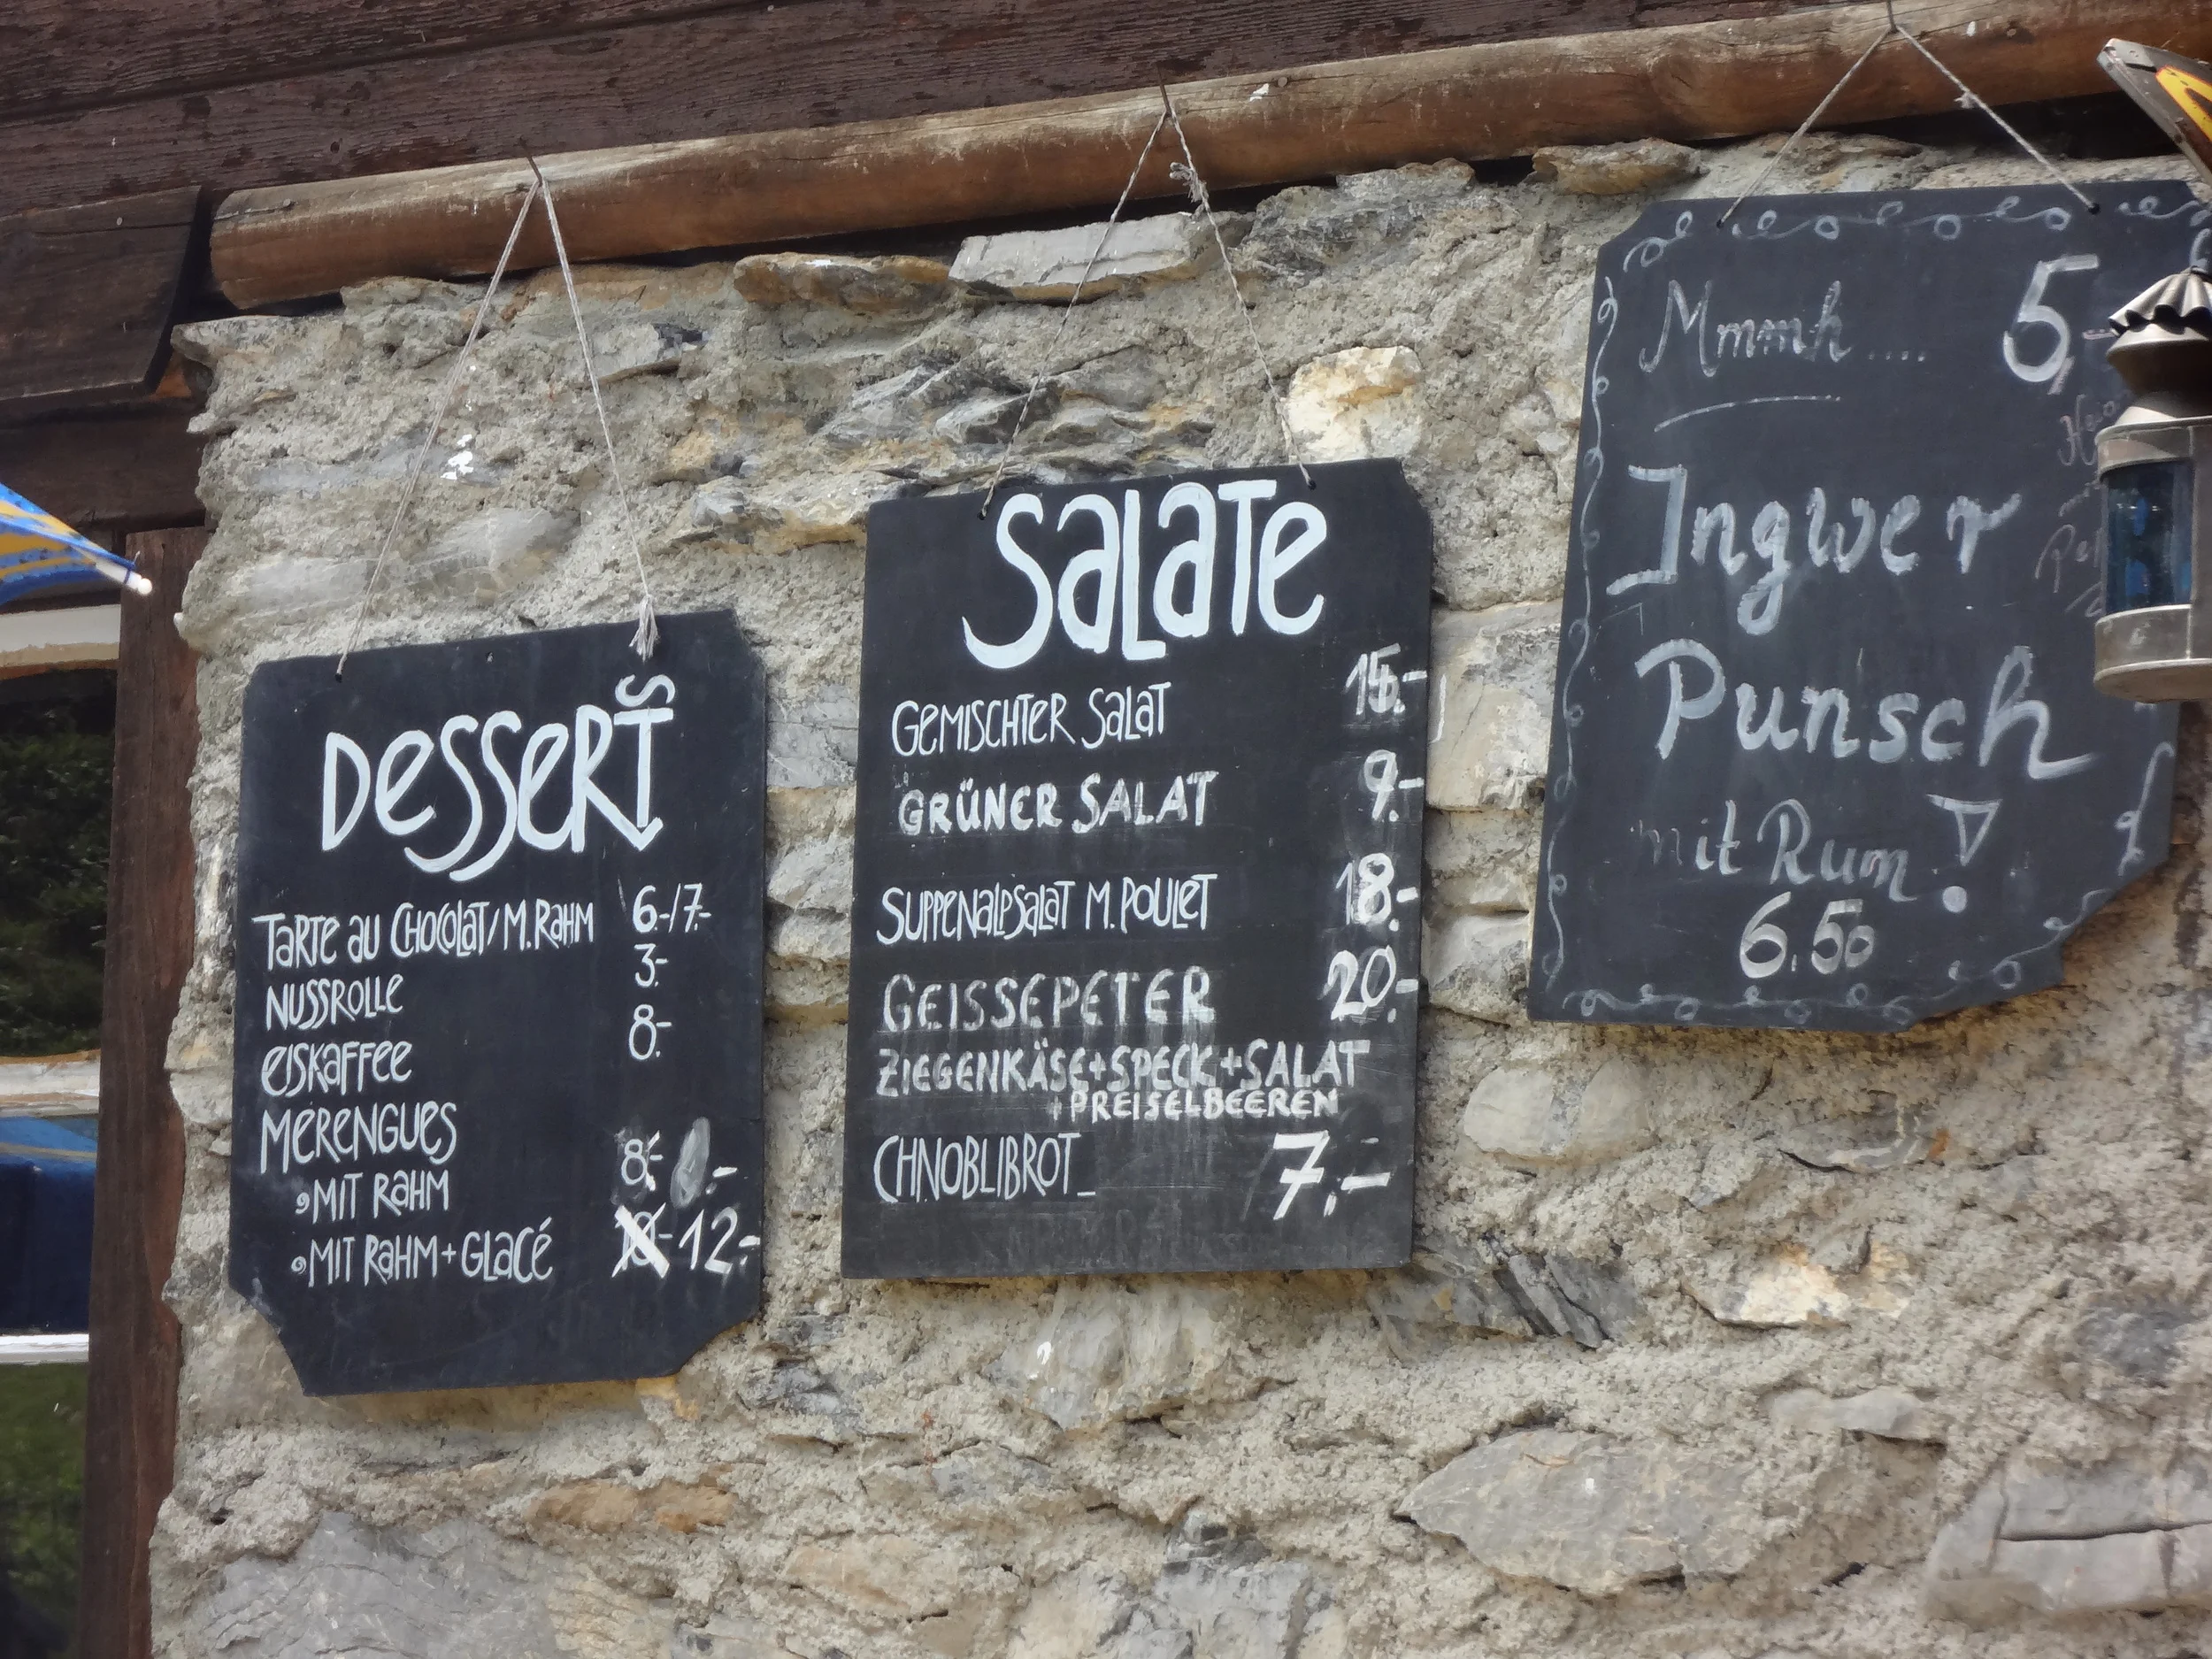 DESSERTS
TARTE AU CHOCOLAT/M.RAHM 6.-/7.-
NUSSROLLE 3.-
EISKAFFEE 8.-
MERENGUES
MIT RAHM 8.-
MIT RAHM+GLACÉ 12.-
SALATE
GEMISCHTER SALAT 15.-
GRÜNER SALAT 9.-
SUPPENALPSALAT M.POULET 18.-
GEISSEPETER 20.-
ZIEGENKÄSE+SPECK+SALAT
+PREISELBEEREN
CHNOBLIBROT_ 7.-
Mmmh.... 5,-
Ingwer
Punsch
mit Rum!
6.50